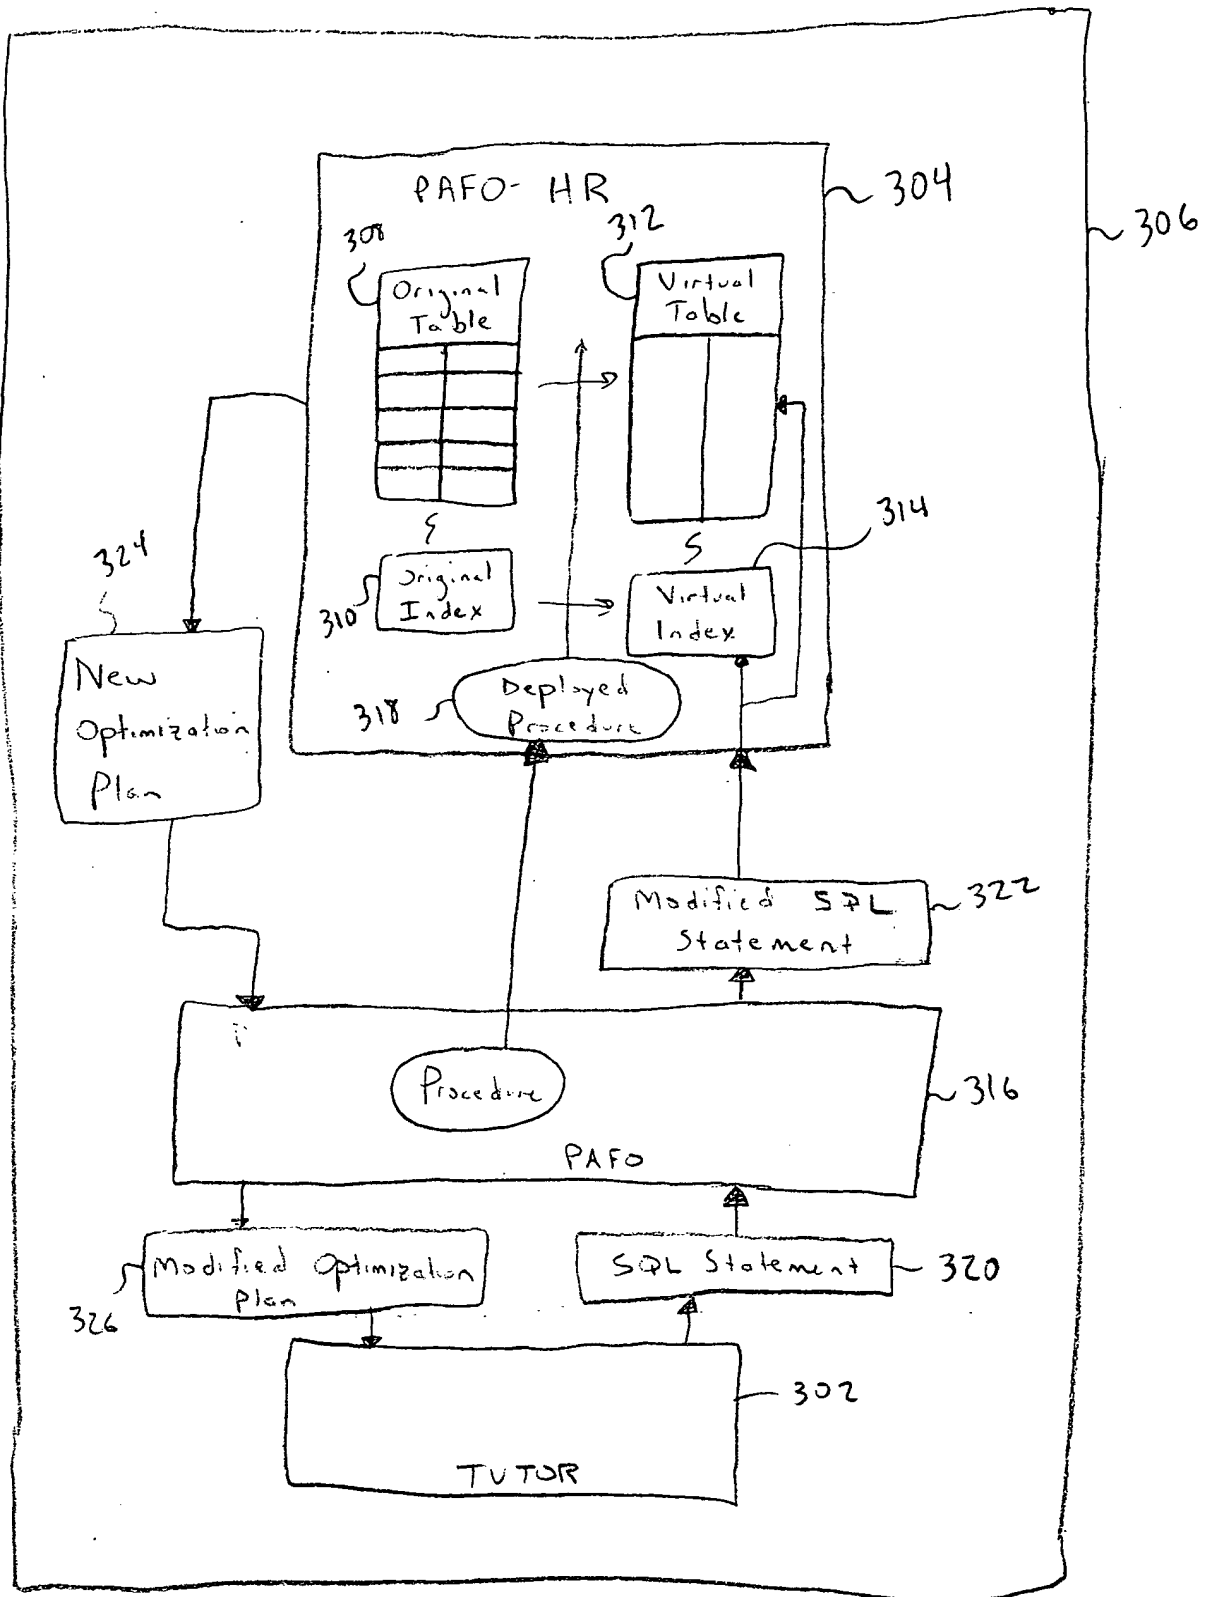 PAFO-HR
304
306
308
312
Original
Table
Virtual
Table
314
324
310
Original
Index
Virtual
Index
New
Optimization
Plan
318
Deployed
Procedure
Modified SQL
Statement
322
Procedure
316
PAFO
Modified Optimization
Plan
326
SQL Statement
320
302
TUTOR